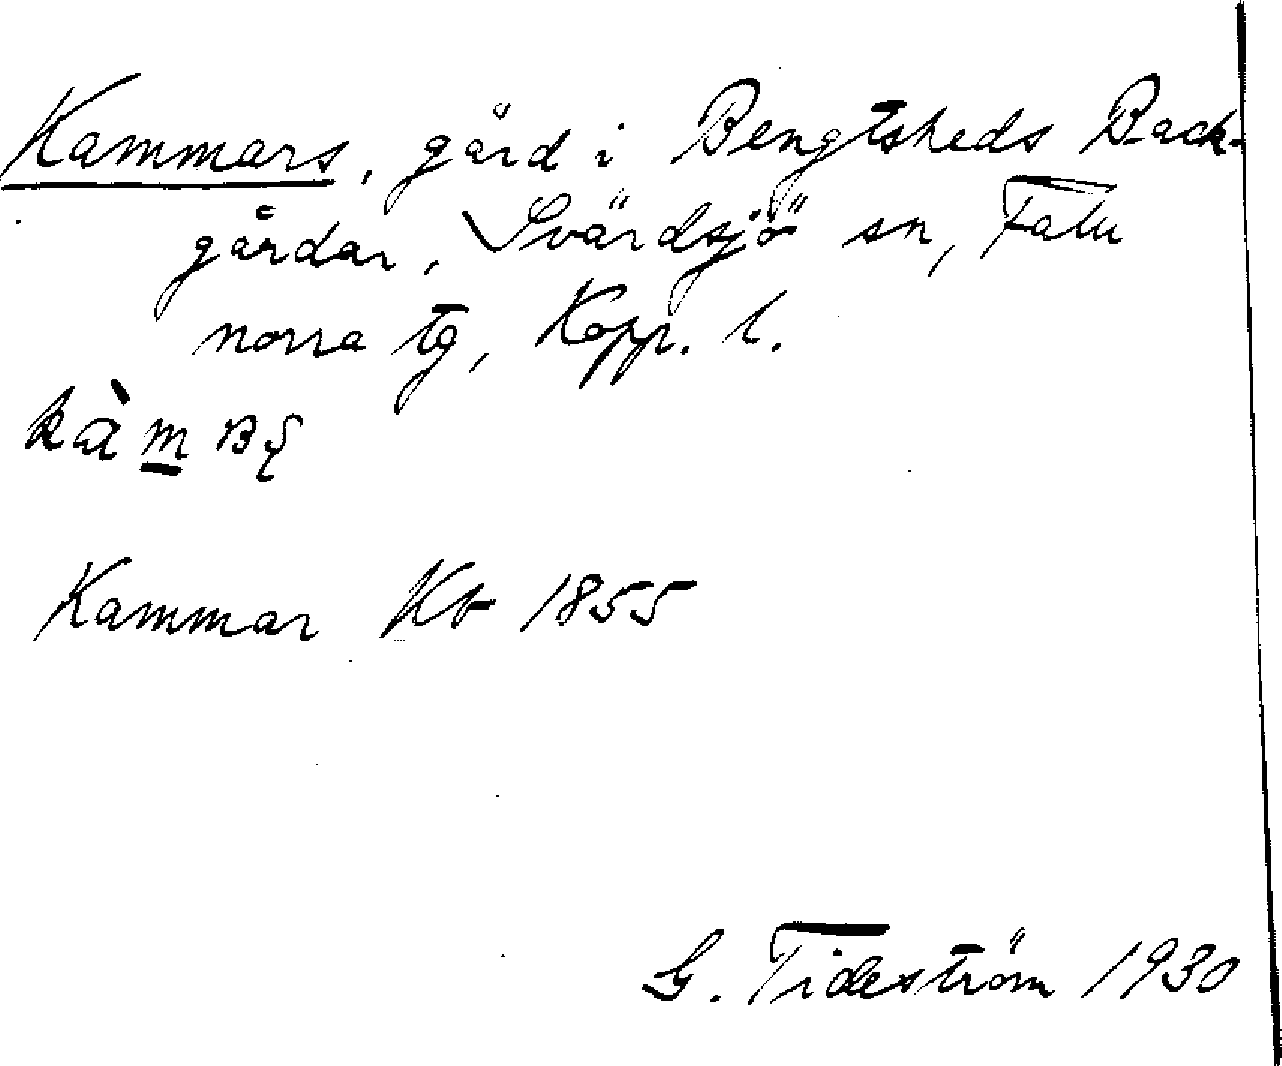 Kammars, gård i Bengtsheds Back-
gårdar, Svärdsjö sn, Falu
norra tg, Kopp. l.
Kammar Kb 1855
G. Tideström 1930